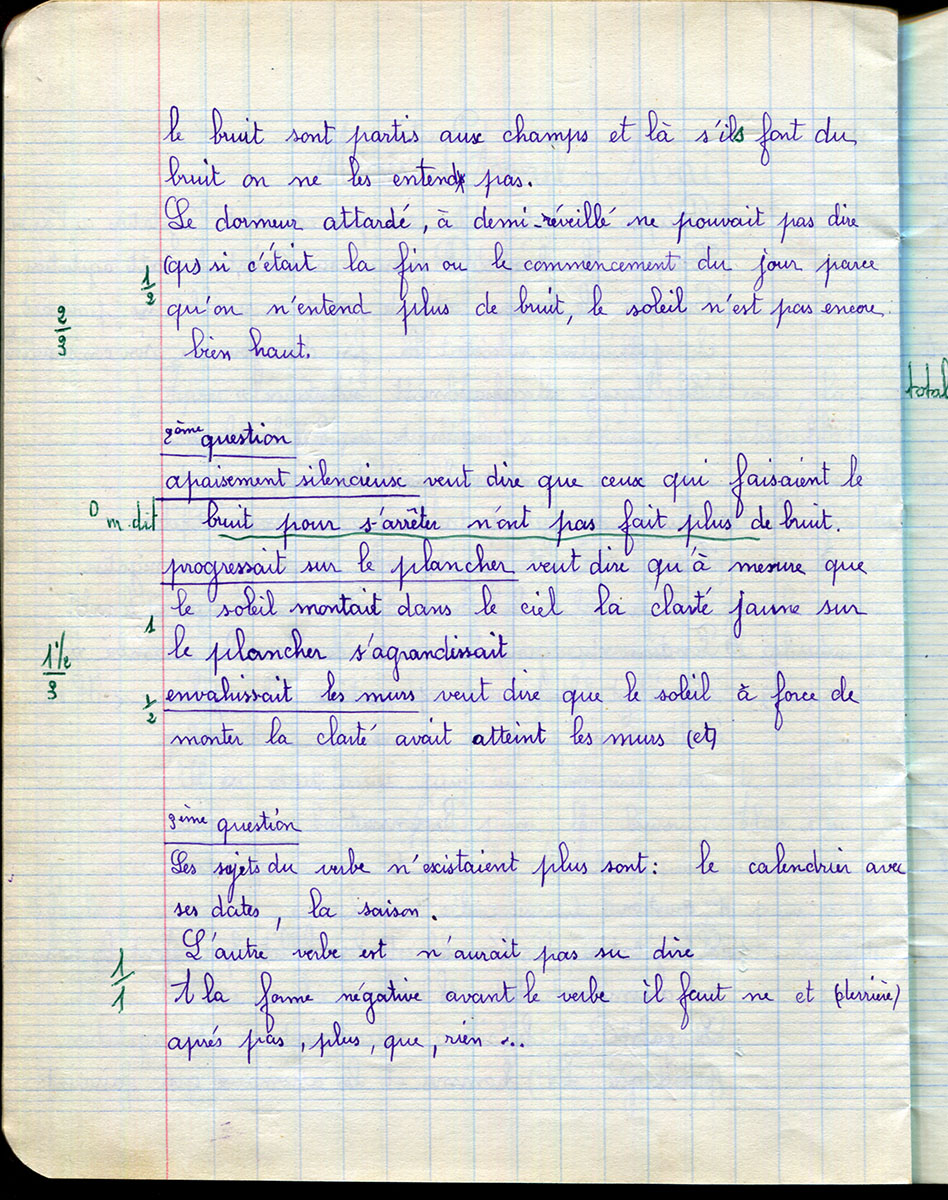 le bruit sont partis aux champs et là s'ils font du
bruit on ne les entend pas.
Le dormeur attardé, à demi-réveillé ne pouvait pas dire
(qu) si c'était la fin ou le commencement du jour parce
1/2
qu'on n'entend plus de bruit, le soleil n'est pas encore
2/3
bien haut.
total
2ème question
apaisement silencieux veut dire que ceux qui faisaient le
0 m. dit bruit pour s'arrêter n'ont pas fait plus de bruit.
progressait sur le plancher veut dire qu'à mesure que
le soleil montait dans le ciel la clarté jaune sur
1
le plancher s'agrandissait
1 1/2
3
1/2 envahissait les murs veut dire que le soleil à force de
monter la clarté avait atteint les murs (et)
3ième question
Les sujets du verbe n'existaient plus sont : le calendrier avec
ses dates, la saison.
L'autre verbe est n'aurait pas su dire
1/1
A la forme négative avant le verbe il faut ne et (derrière)
après pas, plus, que, rien ...